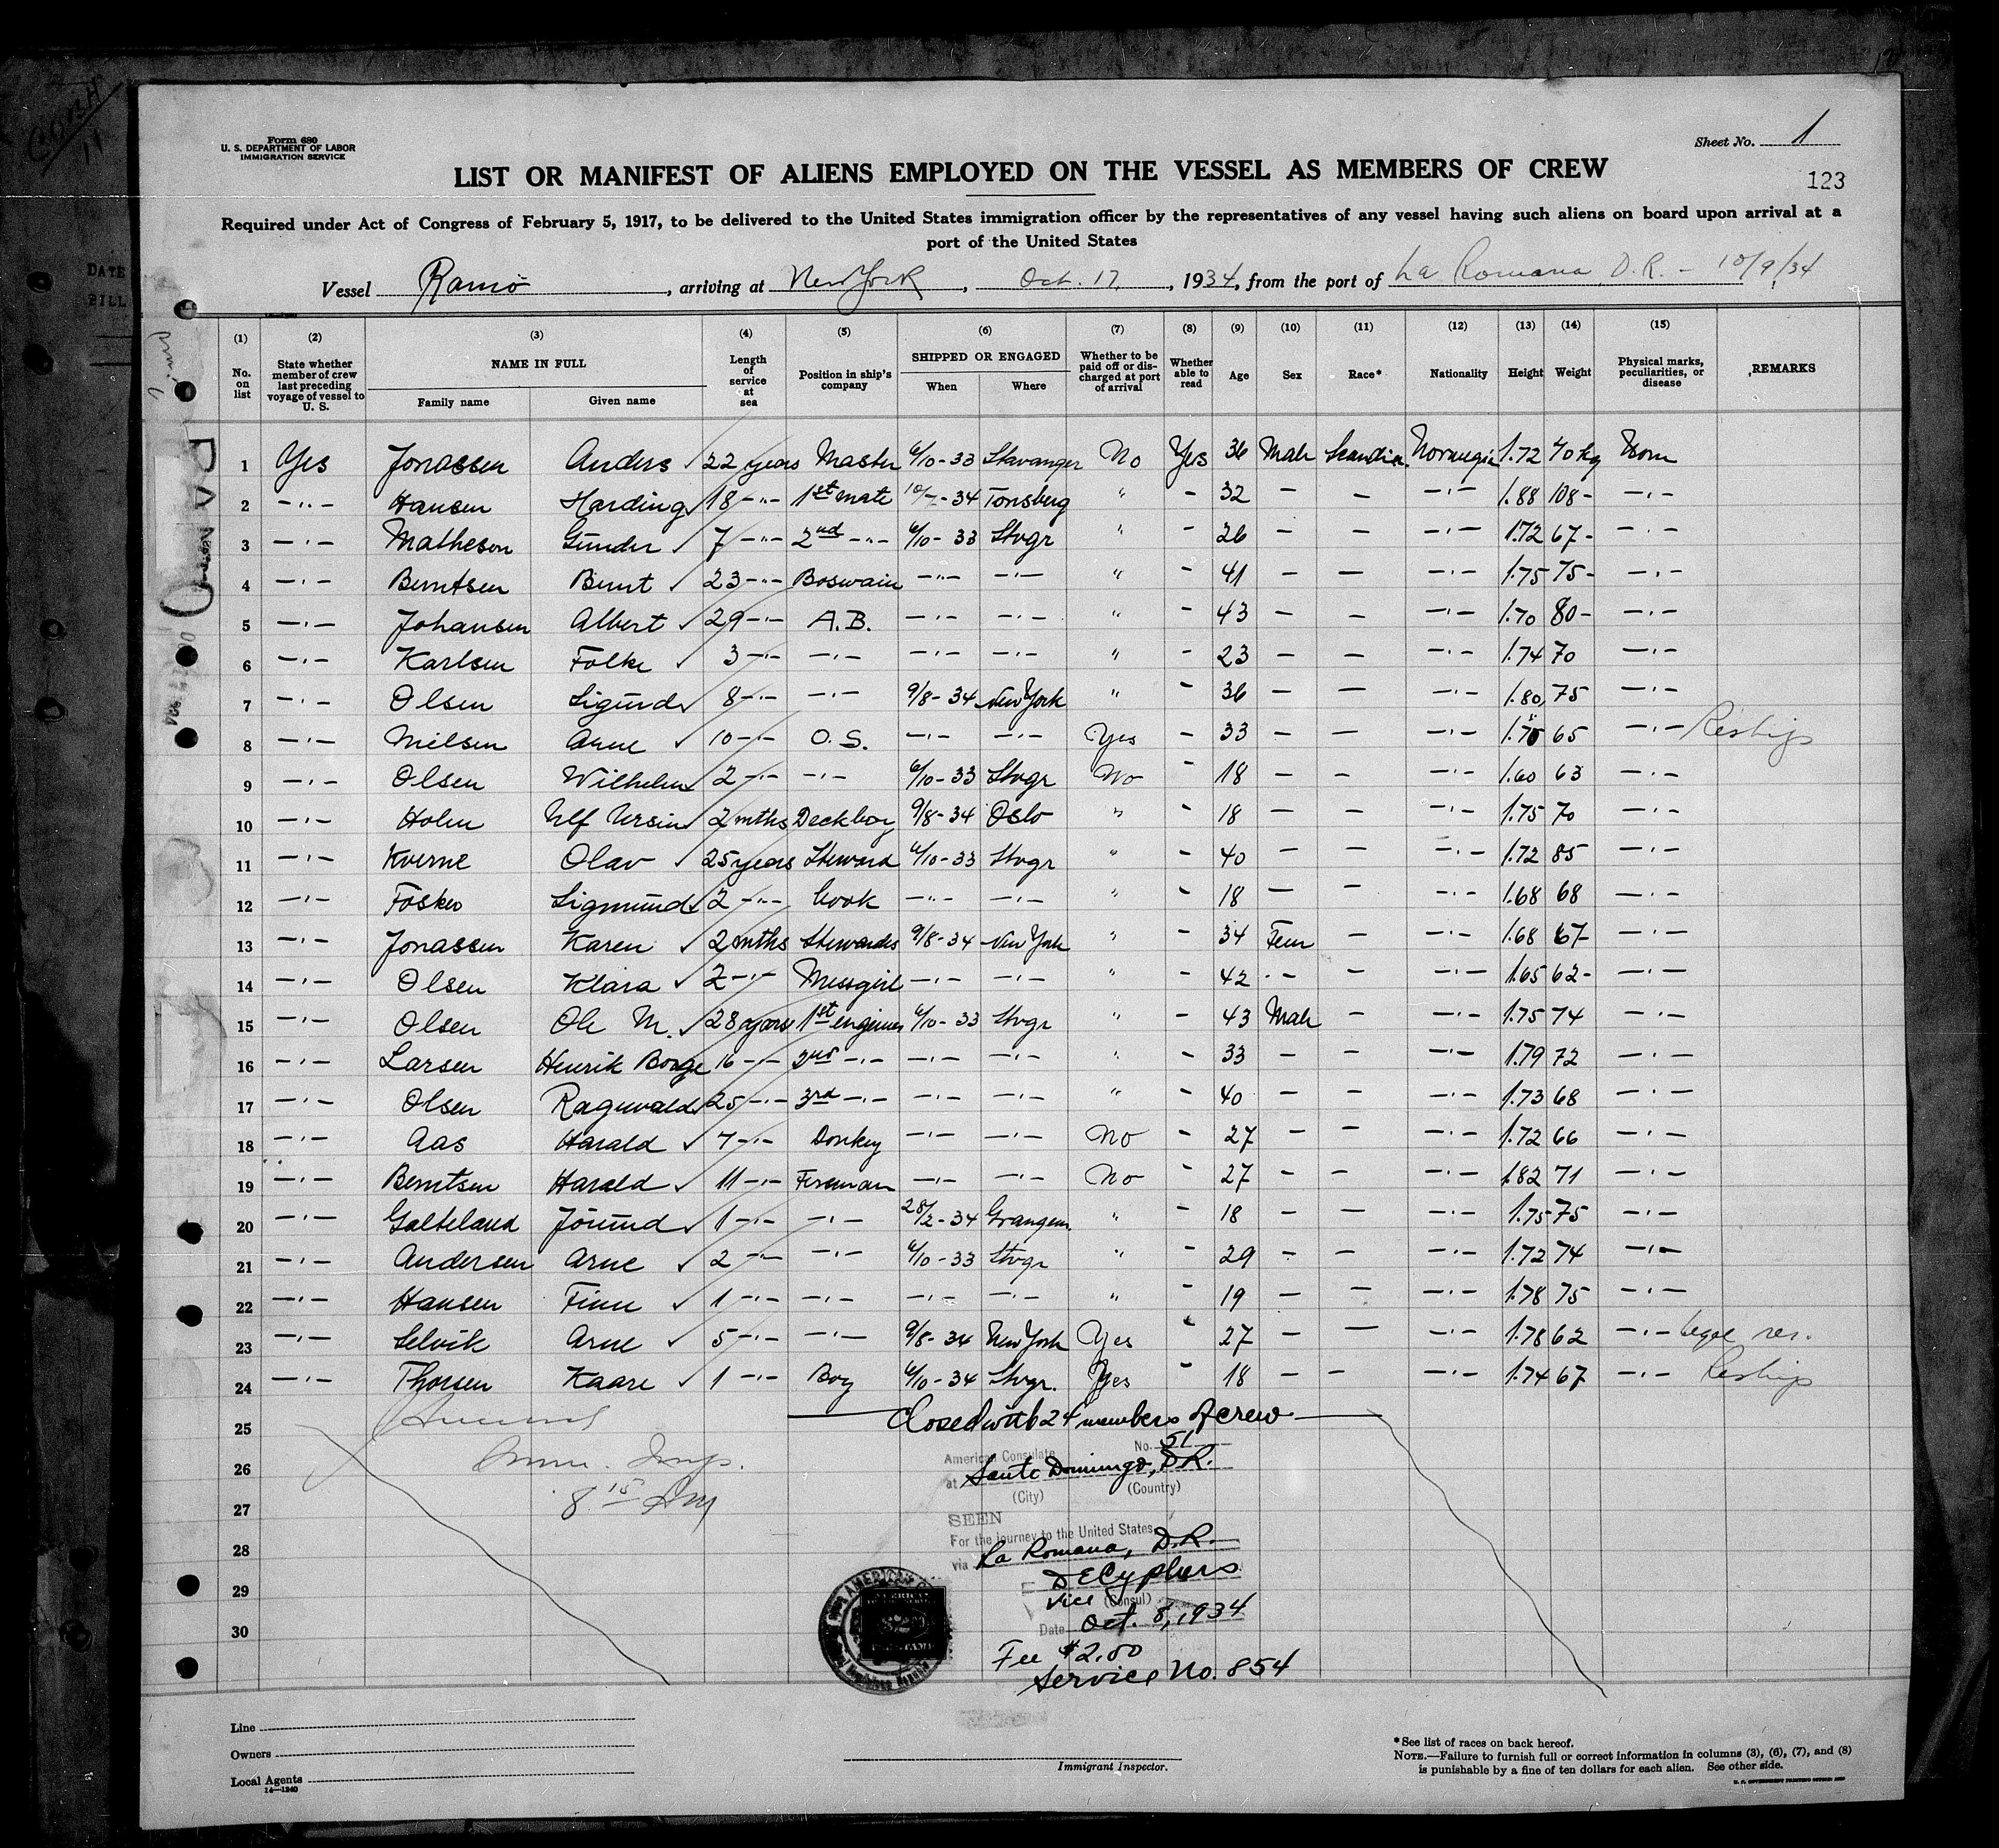 Form 680
U. S. DEPARTMENT OF LABOR
IMMIGRATION SERVICE
Sheet No. 1
LIST OR MANIFEST OF ALIENS EMPLOYED ON THE VESSEL AS MEMBERS OF CREW
123
Required under Act of Congress of February 5, 1917, to be delivered to the United States immigration officer by the representatives of any vessel having such aliens on board upon arrival at a
port of the United States
Vessel Ramö, arriving at New York, Oct. 17, 1934, from the port of La Romana, D.R. - 10/9/34
(1) (2) (3) (4) (5) (6) (7) (8) (9) (10) (11) (12) (13) (14) (15)
No. on list State whether member of crew last preceding voyage of vessel to U. S. NAME IN FULL Family name Given name Length of service at sea Position in ship's company SHIPPED OR ENGAGED When Where Whether to be paid off or discharged at port of arrival Whether able to read Age Sex Race* Nationality Height Weight Physical marks, peculiarities, or disease REMARKS
1 Yes Jonassen Anders 22 years Master 6/10-33 Stavanger No Yes 36 Male Scandin. Norwegian 1.72 70 kg None
2 -"- Hansen Harding 18 -"- 1st mate 10/7-34 Tonsberg " - 32 - - -"- 1.88 108- -"-
3 -"- Mathesen Gunder 7 -"- 2nd -"- 6/10-33 Stvgr " - 26 - - -"- 1.72 67- -"-
4 -"- Berntsen Bernt 23 -"- Boswain -"- -"- " - 41 - - -"- 1.75 75- -"-
5 -"- Johansen Albert 29 -"- A.B. -"- -"- " - 43 - -"- 1.70 80- -"-
6 -"- Karlsen Folke 3 -"- -"- -"- -"- " - 23 - - -"- 1.74 70 -"-
7 -"- Olsen Sigurd 8 -"- -"- 9/8-34 New York " - 36 - - -"- 1.80 75 -"-
8 -"- Nielsen Arne 10 -"- O.S. -"- -"- Yes - 33 - - -"- 1.70 65 -"- Reships
9 -"- Olsen Wilhelm 2 -"- -"- 6/10-33 Stvgr No - 18 - - -"- 1.60 63 -"-
10 -"- Holm Ulf Ursin 2 mths Deckboy 9/8-34 Oslo " - 18 - - -"- 1.75 70 -"-
11 -"- Kverne Olav 25 years Steward 6/10-33 Stvgr " - 40 - - -"- 1.72 85 -"-
12 -"- Sigmund 2 -"- Cook -"- -"- " - 18 - - -"- 1.68 68 -"-
13 -"- Jonassen Karen 2 mths Stewardes 9/8-34 New York " - 34 Fem - -"- 1.68 67- -"-
14 -"- Olsen Klara 2 -"- Messgirl -"- -"- " - 42 -"- - -"- 1.65 62- -"-
15 -"- Olsen Ole M. 28 years 1st engineer 6/10-33 Stvgr " - 43 Male - -"- 1.75 74 -"-
16 -"- Larsen Henrik Borge 16 -"- 2nd -"- -"- -"- " - 33 - - -"- 1.79 72 -"-
17 -"- Olsen Ragnvald 25 -"- 3rd -"- -"- -"- " - 40 - - -"- 1.73 68 -"-
18 -"- Aas Harald 7 -"- Donkey -"- -"- No - 27 - - -"- 1.72 66 -"-
19 -"- Berntsen Harald 11 -"- Fireman -"- -"- No - 27 - - -"- 1.82 71 -"-
20 -"- Galteland Jörund 1 -"- -"- 28/2-34 Grangem. " - 18 - - -"- 1.75 75 -"-
21 -"- Andersen Arne 2 -"- -"- 6/10-33 Stvgr " - 29 - - -"- 1.72 74 -"-
22 -"- Hansen Finn 1 -"- -"- -"- -"- " - 19 - - -"- 1.78 75 -"-
23 -"- Selvik Arne 5 -"- -"- 9/8-34 New York Yes - 27 - - -"- 1.78 62 -"- legal res.
24 -"- Thorsen Kaare 1 -"- Boy 6/10-34 Stvgr. Yes - 18 - - -"- 1.74 67 -"- Reships
25 Closed with 24 members of crew
26 Imm. Insp.
27 8 15 AM
28
29
30
American Consulate No. 51
at Santo Domingo, D.R.
(City) (Country)
SEEN
For the journey to the United States
via La Romana, D.R.
Vice (Consul)
Date Oct. 8, 1934
Fee $2.00
Service No. 854
Line
Owners
Local Agents
14—1240
Immigrant Inspector.
*See list of races on back hereof.
NOTE.—Failure to furnish full or correct information in columns (3), (6), (7), and (8)
is punishable by a fine of ten dollars for each alien. See other side.
U. S. GOVERNMENT PRINTING OFFICE
DATE
BILL